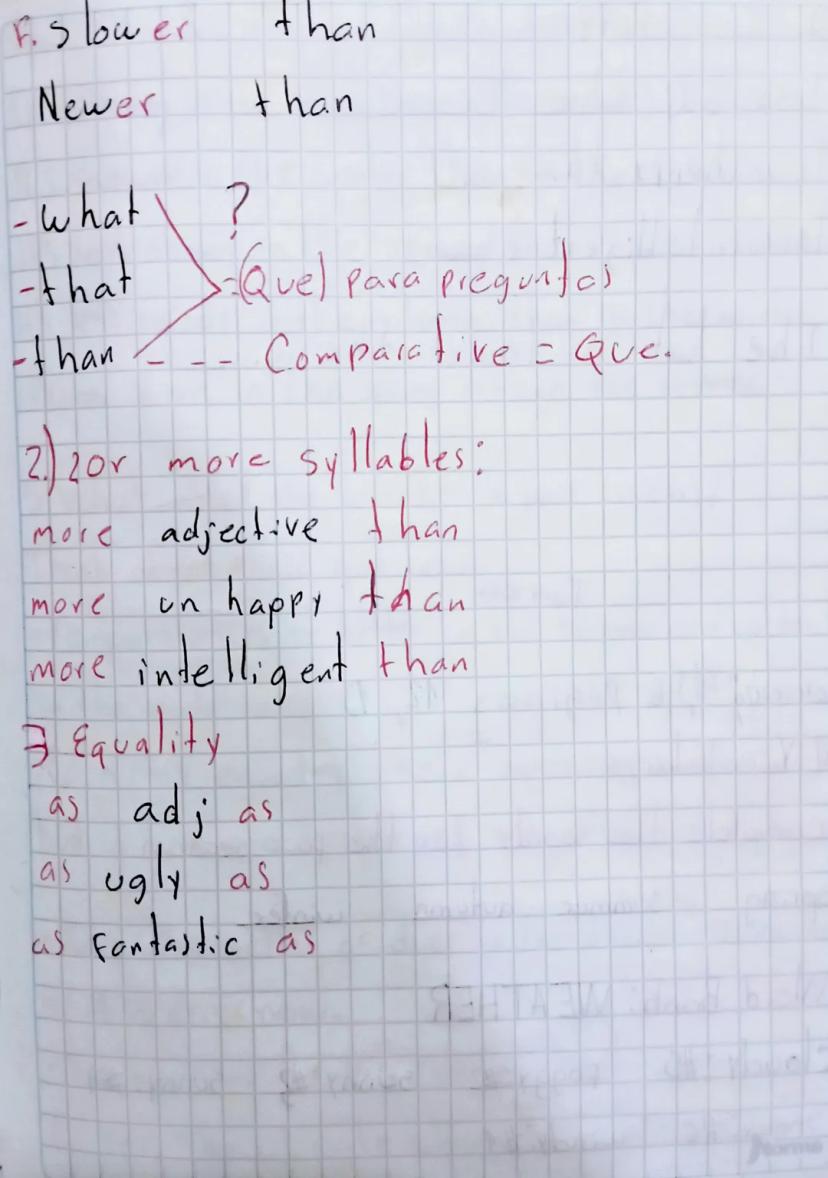 F. Slower than
Newer than
- what ?
- that = (Que) para preguntas
- than - - - Comparative = Que.
2.) 2 or more syllables:
more adjective than
more un happy than
more intelligent than
3 Equality
as adj as
as ugly as
as fantastic as